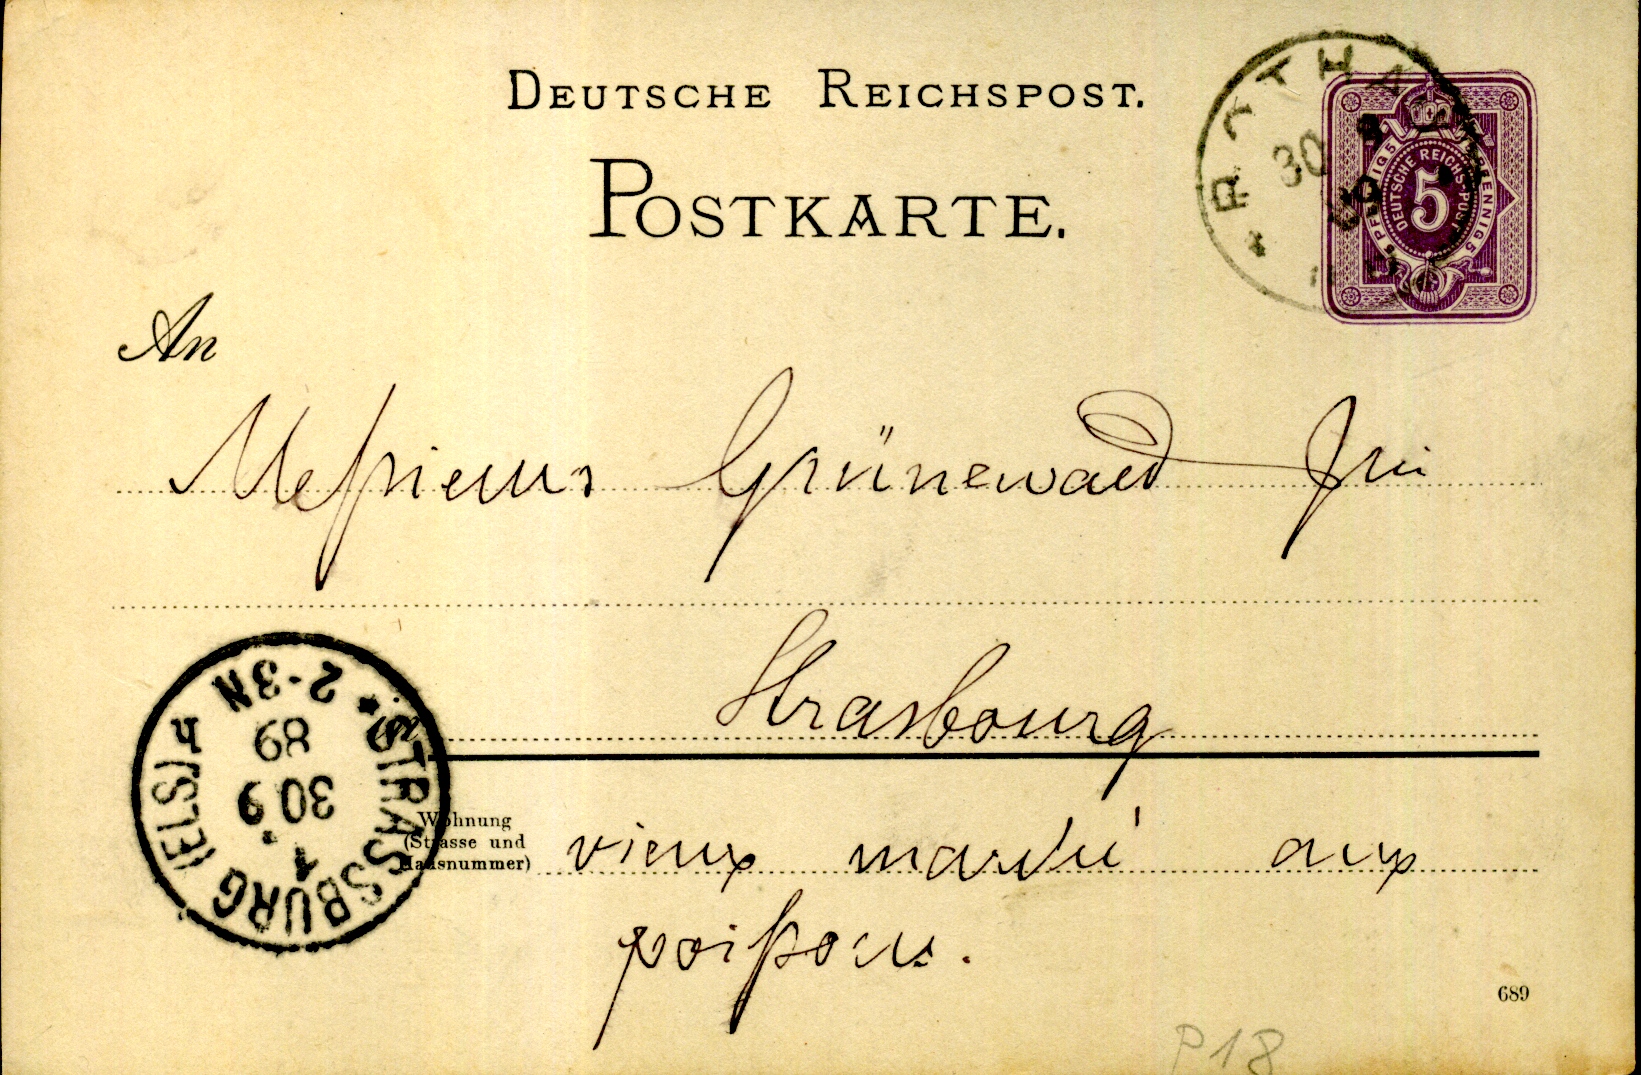 DEUTSCHE REICHSPOST.
POSTKARTE.
ROTHAU
30 9
89
PFENNIG 5 PFENNIG 5
DEUTSCHE REICHS-POST
5
An
Messieurs Grünewald
Strasbourg
STRASSBURG (ELS) 4
2-3N
89
30 9
1
Wohnung
(Strasse und
Hausnummer)
vieux marché aux
poissons.
689
P18